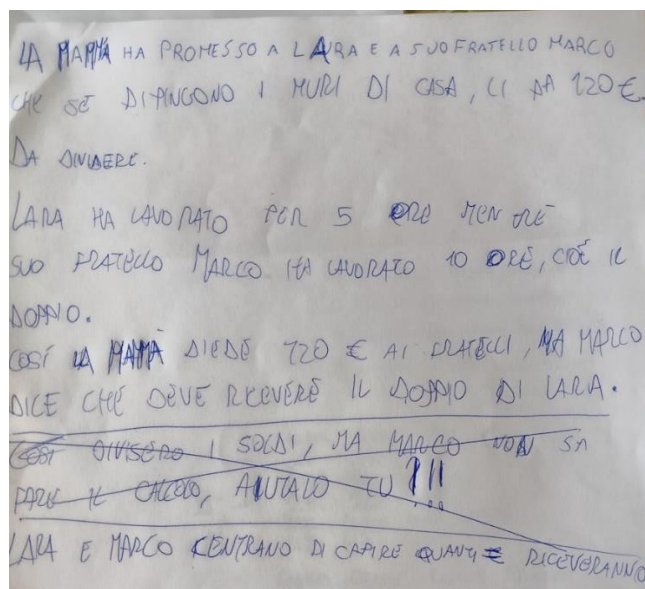 LA MAMMA HA PROMESSO A LARA E A SUO FRATELLO MARCO
CHE SE DIPINGONO I MURI DI CASA, LI DA 120 €.
DA DIVIDERE.
LARA HA LAVORATO PER 5 ORE MENTRE
SUO FRATELLO MARCO HA LAVORATO 10 ORE, CIOÈ IL
DOPPIO.
COSÍ LA MAMMA DIEDE 120 € AI FRATELLI, MA MARCO
DICE CHE DEVE RICEVERE IL DOPPIO DI LARA.
COSÍ DIVISERO I SOLDI, MA MARCO NON SA
FARE IL CALCOLO, AIUTALO TU ?!!
LARA E MARCO CENTRANO DI CAPIRE QUANTI € RICEVERANNO